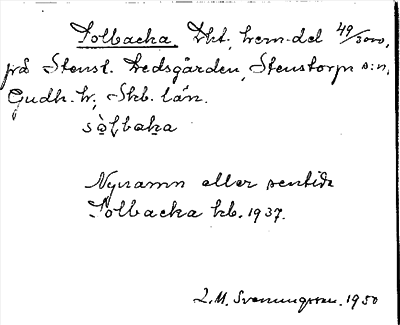 Solbacka Lht, hem.del 49/3000,
på Stensl. Hedsgården, Stenstorps s:n,
Gudh. h; Skb. län.
sòlbaka
Nynamn eller sentida
Solbacka kb. 1937.
L.M. Svenungsson. 1950